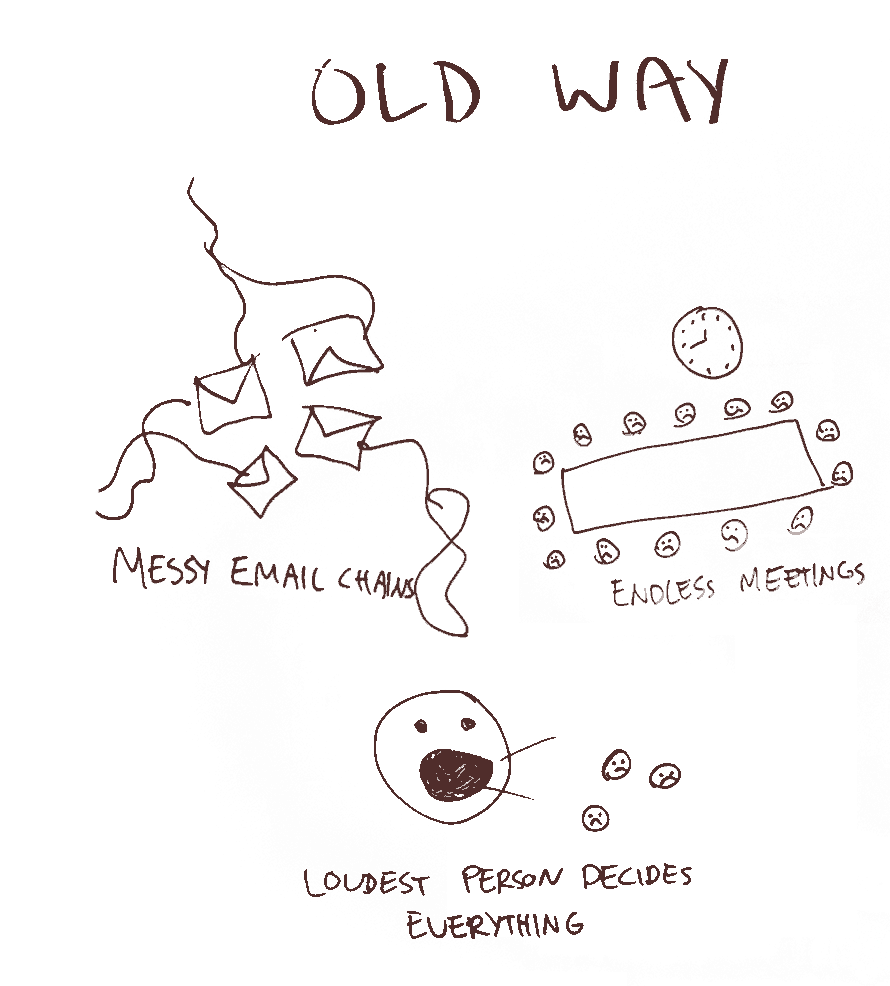 OLD WAY
MESSY EMAIL CHAINS
ENDLESS MEETINGS
LOUDEST PERSON DECIDES
EVERYTHING